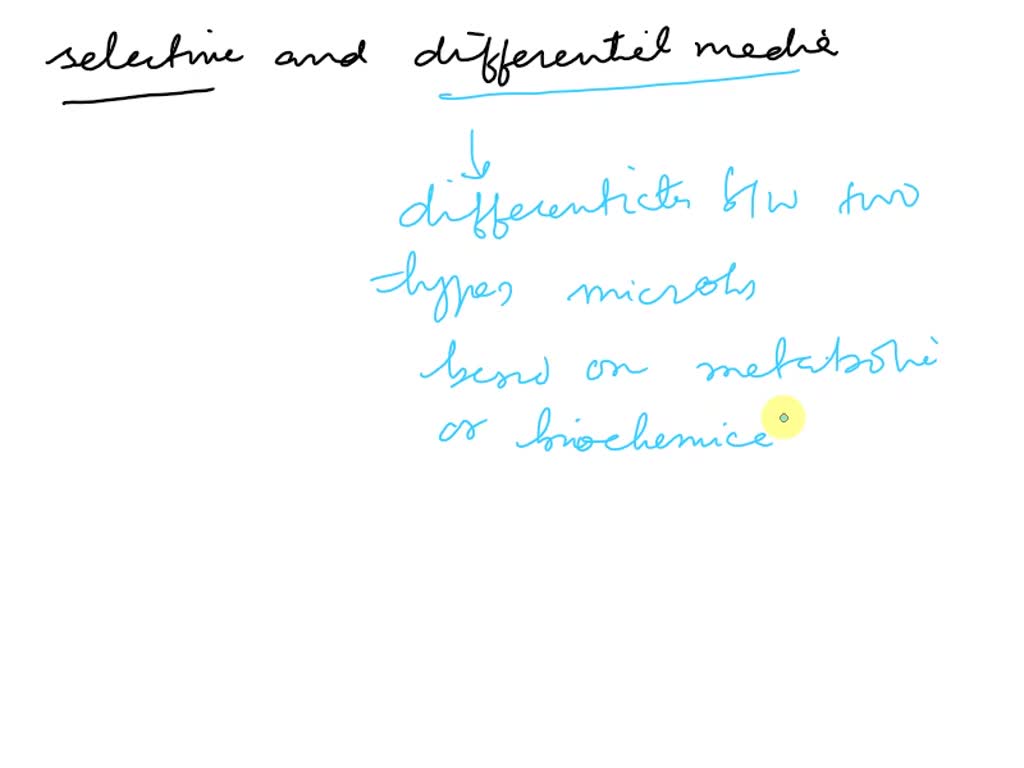 selective and differential media
differentiates b/w two
types microbs
based on metabolic
or biochemica